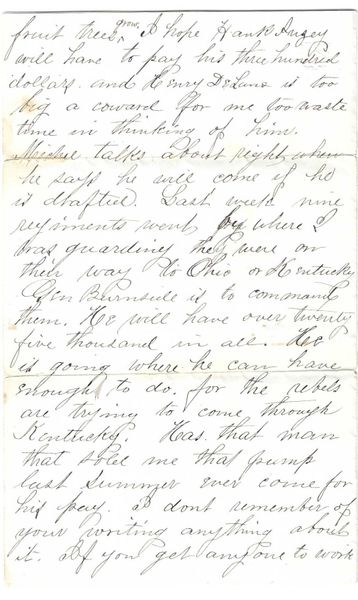 fruit trees grow. I hope Hank Angey
will have to pay his three hundred
dollars. and Henry DeLane is too
big a coward for me too waste
time in thinking of him.
talks about right when
he says he will come if he
is drafted. Last week nine
regiments went by where I
was guarding they were on
their way to Ohio or Kentucky
Gen Burnside is to command
them. He will have over twenty
five thousand in all. He
is going where he can have
enough to do. for the rebels
are trying to come through
Kentucky. Has that man
that sold me that pump
last summer ever come for
his pay. I dont remember of
your writing anything about
it. If you get anyone to work